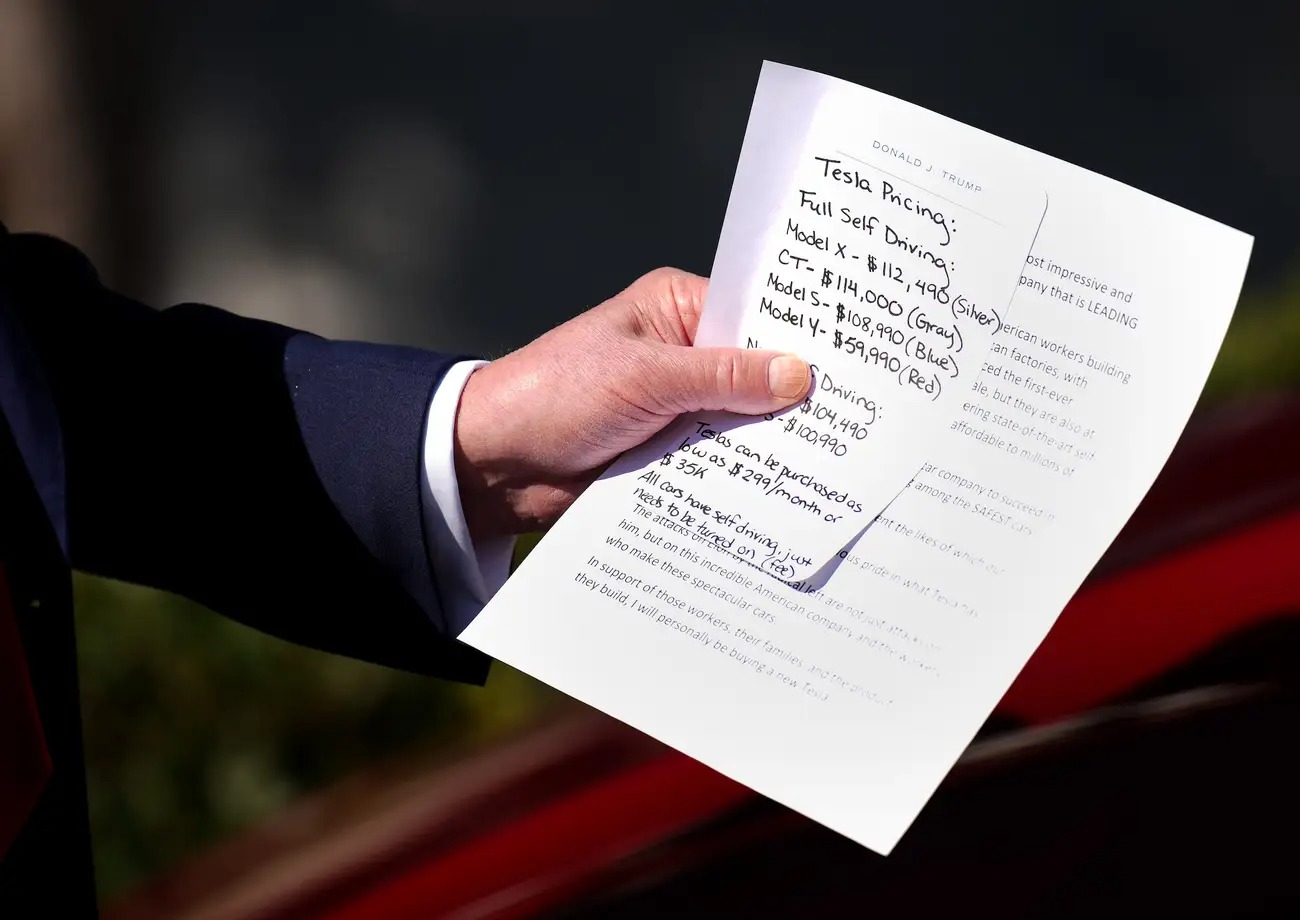 DONALD J. TRUMP
Tesla Pricing:
Full Self Driving:
Model X - $112,490 (Silver)
CT - $114,000 (Gray)
Model S - $108,990 (Blue)
Model Y - $59,990 (Red)
Driving:
$104,490
$100,990
Teslas can be purchased as
low as $299/month or
$35K
All cars have self driving, just
needs to be turned on (fee)
ost impressive and
pany that is LEADING
erican workers building
an factories, with
ced the first-ever
ale, but they are also at
ering state-of-the-art self-
affordable to millions of
ar company to succeed in
among the SAFEST cars
ent the likes of which our
ous pride in what Tesla has
The attacks on Elon by the radical left are not just attacks on
him, but on this incredible American company and the workers
who make these spectacular cars.
In support of those workers, their families, and the product
they build, I will personally be buying a new Tesla